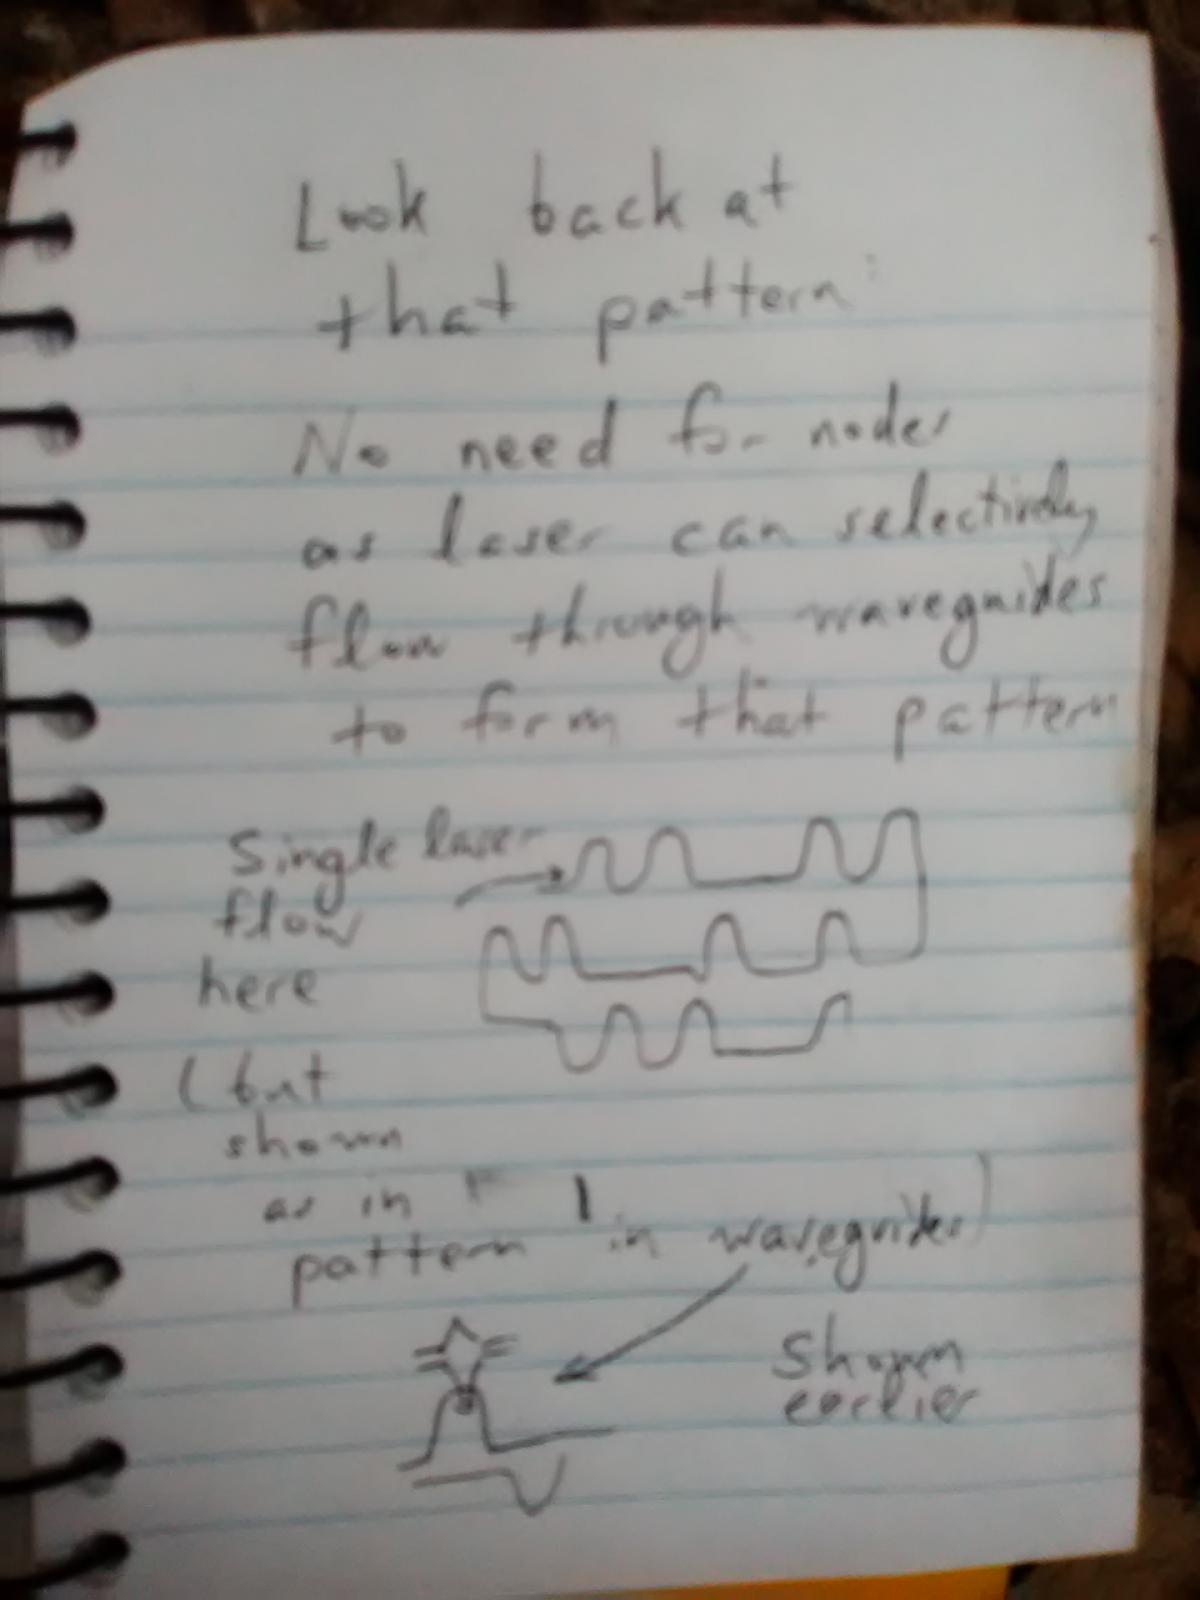 Look back at
that pattern:
No need for nodes
as laser can selectively
flow through waveguides
to form that pattern
Single laser
flow
here
(but
shown
as in
pattern in waveguides)
Shown
earlier